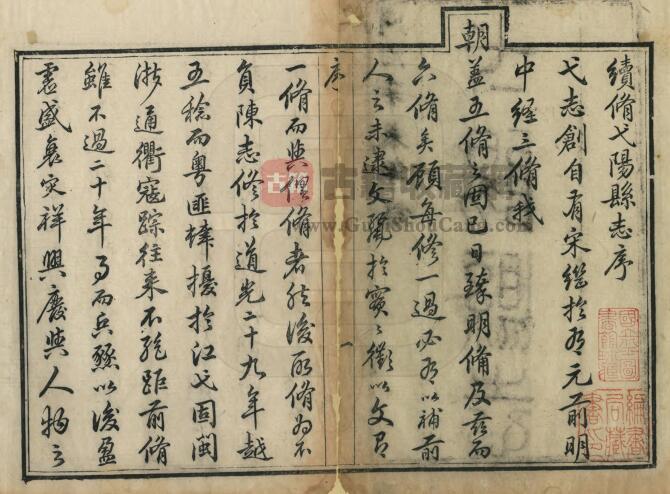 續脩弋陽縣志序
弋志創自有宋繼於有元前明
中經三脩我
朝蓋五脩之固已日臻明備及茲而
六脩矣顧每修一過必有以補前
人之未逮文於實之徵以文
序
一
一脩而與脩者然後所脩為不
負陳志修於道光二十九年越
五稔而粵匪蜂擾於江弋固閩
浙通衢寇踪往來不絕距前脩
雖不過二十年而兵燹以後盈
虛盛衰灾祥興廢與人物之
www.GuJiShouCang.com